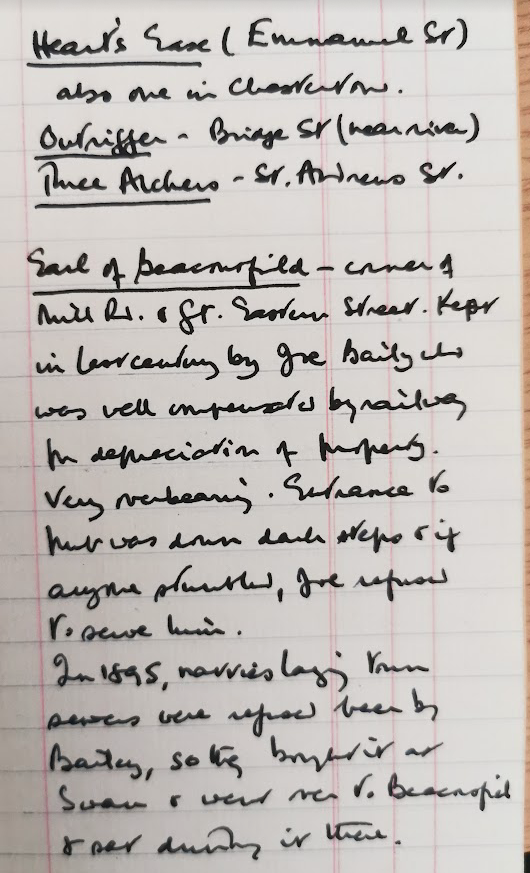 Heart's Ease (Emmanuel St)
also one in Chesterton.
Outrigger - Bridge St (near river)
Three Archers - St. Andrews St.
Earl of Beaconsfield - corner of
Mill Rd. & Gt. Eastern Street. Kept
in last century by Joe Baily who
was well compensated by railway
for depreciation of property.
Very overbearing. Entrance to
pub was down dark steps & if
anyone stumbled, Joe refused
to serve him.
In 1895, navvies laying town
sewers were refused beer by
Bailey, so they bought it at
Swan & went over to Beaconsfield
& sat drinking it there.